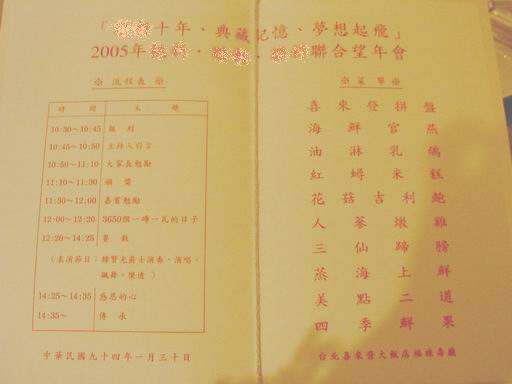 「十年、典藏記憶、夢想起飛」
2005年 · · 聯合望年會
※ 流程表 ※
時 間 主 題
10:30~10:45 報 到
10:45~10:50 主持人引言
10:50~11:10 大家長勉勵
11:10~11:30 頒 獎
11:30~12:00 嘉賓勉勵
12:00~12:20 3650個一磚一瓦的日子
12:20~14:25 餐 敘
(表演節目：韓賢光爵士演奏、演唱、
舞、樂透)
14:25~14:35 感恩的心
14:35~ 傳 承
中華民國九十四年一月三十日
※ 菜 單 ※
喜來登拼盤
海鮮官燕
油淋乳鴿
紅蟳米糕
花菇吉利鮑
人蔘燉雞
三仙蹄膀
蒸海上鮮
美點二道
四季鮮果
台北喜來登大飯店福祿壽廳